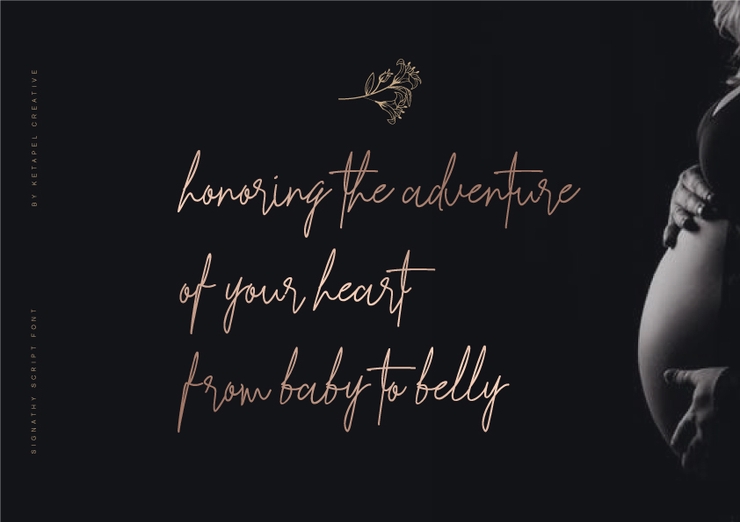 BY KETAPEL CREATIVE
SIGNATHY SCRIPT FONT
honoring the adventure
of your heart
from baby to belly